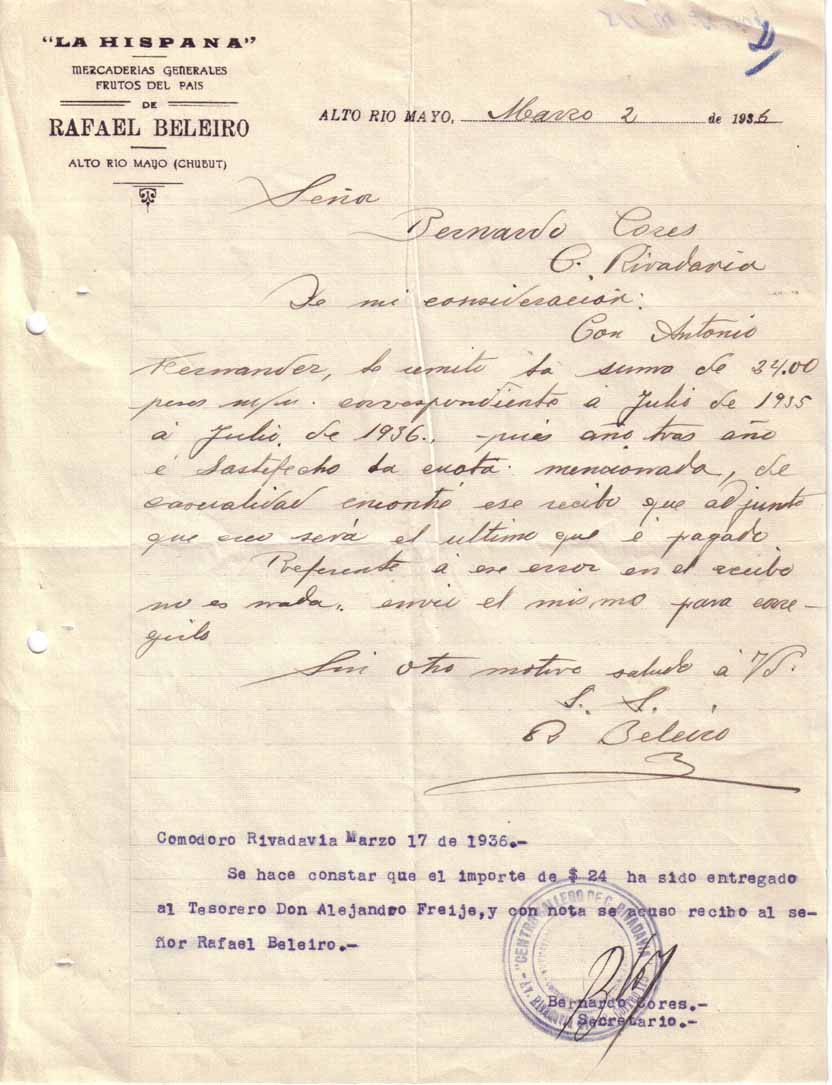 "LA HISPANA"
MERCADERIAS GENERALES
FRUTOS DEL PAIS
DE
RAFAEL BELEIRO
ALTO RIO MAYO (CHUBUT)
ALTO RIO MAYO, Marzo 2 de 1936
Señor
Bernardo Cores
C. Rivadavia
De mi consideración:
Con Antonio
Fernandez, le remito la suma de 24.00
pesos m/n. correspondiente á Julio de 1935
á Julio de 1936., pués año tras año
é Sastifecho la cuota mencionada, de
casualidad encontré ese recibo que adjunto
que creo será el ultimo que é pagado
Referente á ese error en el recibo
no es nada, envie el mismo para corre-
girlo
Sin otro motivo saludo á Vd.
S. S.
R Beleiro
Comodoro Rivadavia Marzo 17 de 1936.-
Se hace constar que el importe de $ 24 ha sido entregado
al Tesorero Don Alejandro Freije,y con nota se acuso recibo al se-
ñor Rafael Beleiro.-
"CENTRO GALLEGO DE C. RIVADAVIA"
Bernardo Cores.-
Secretario.-